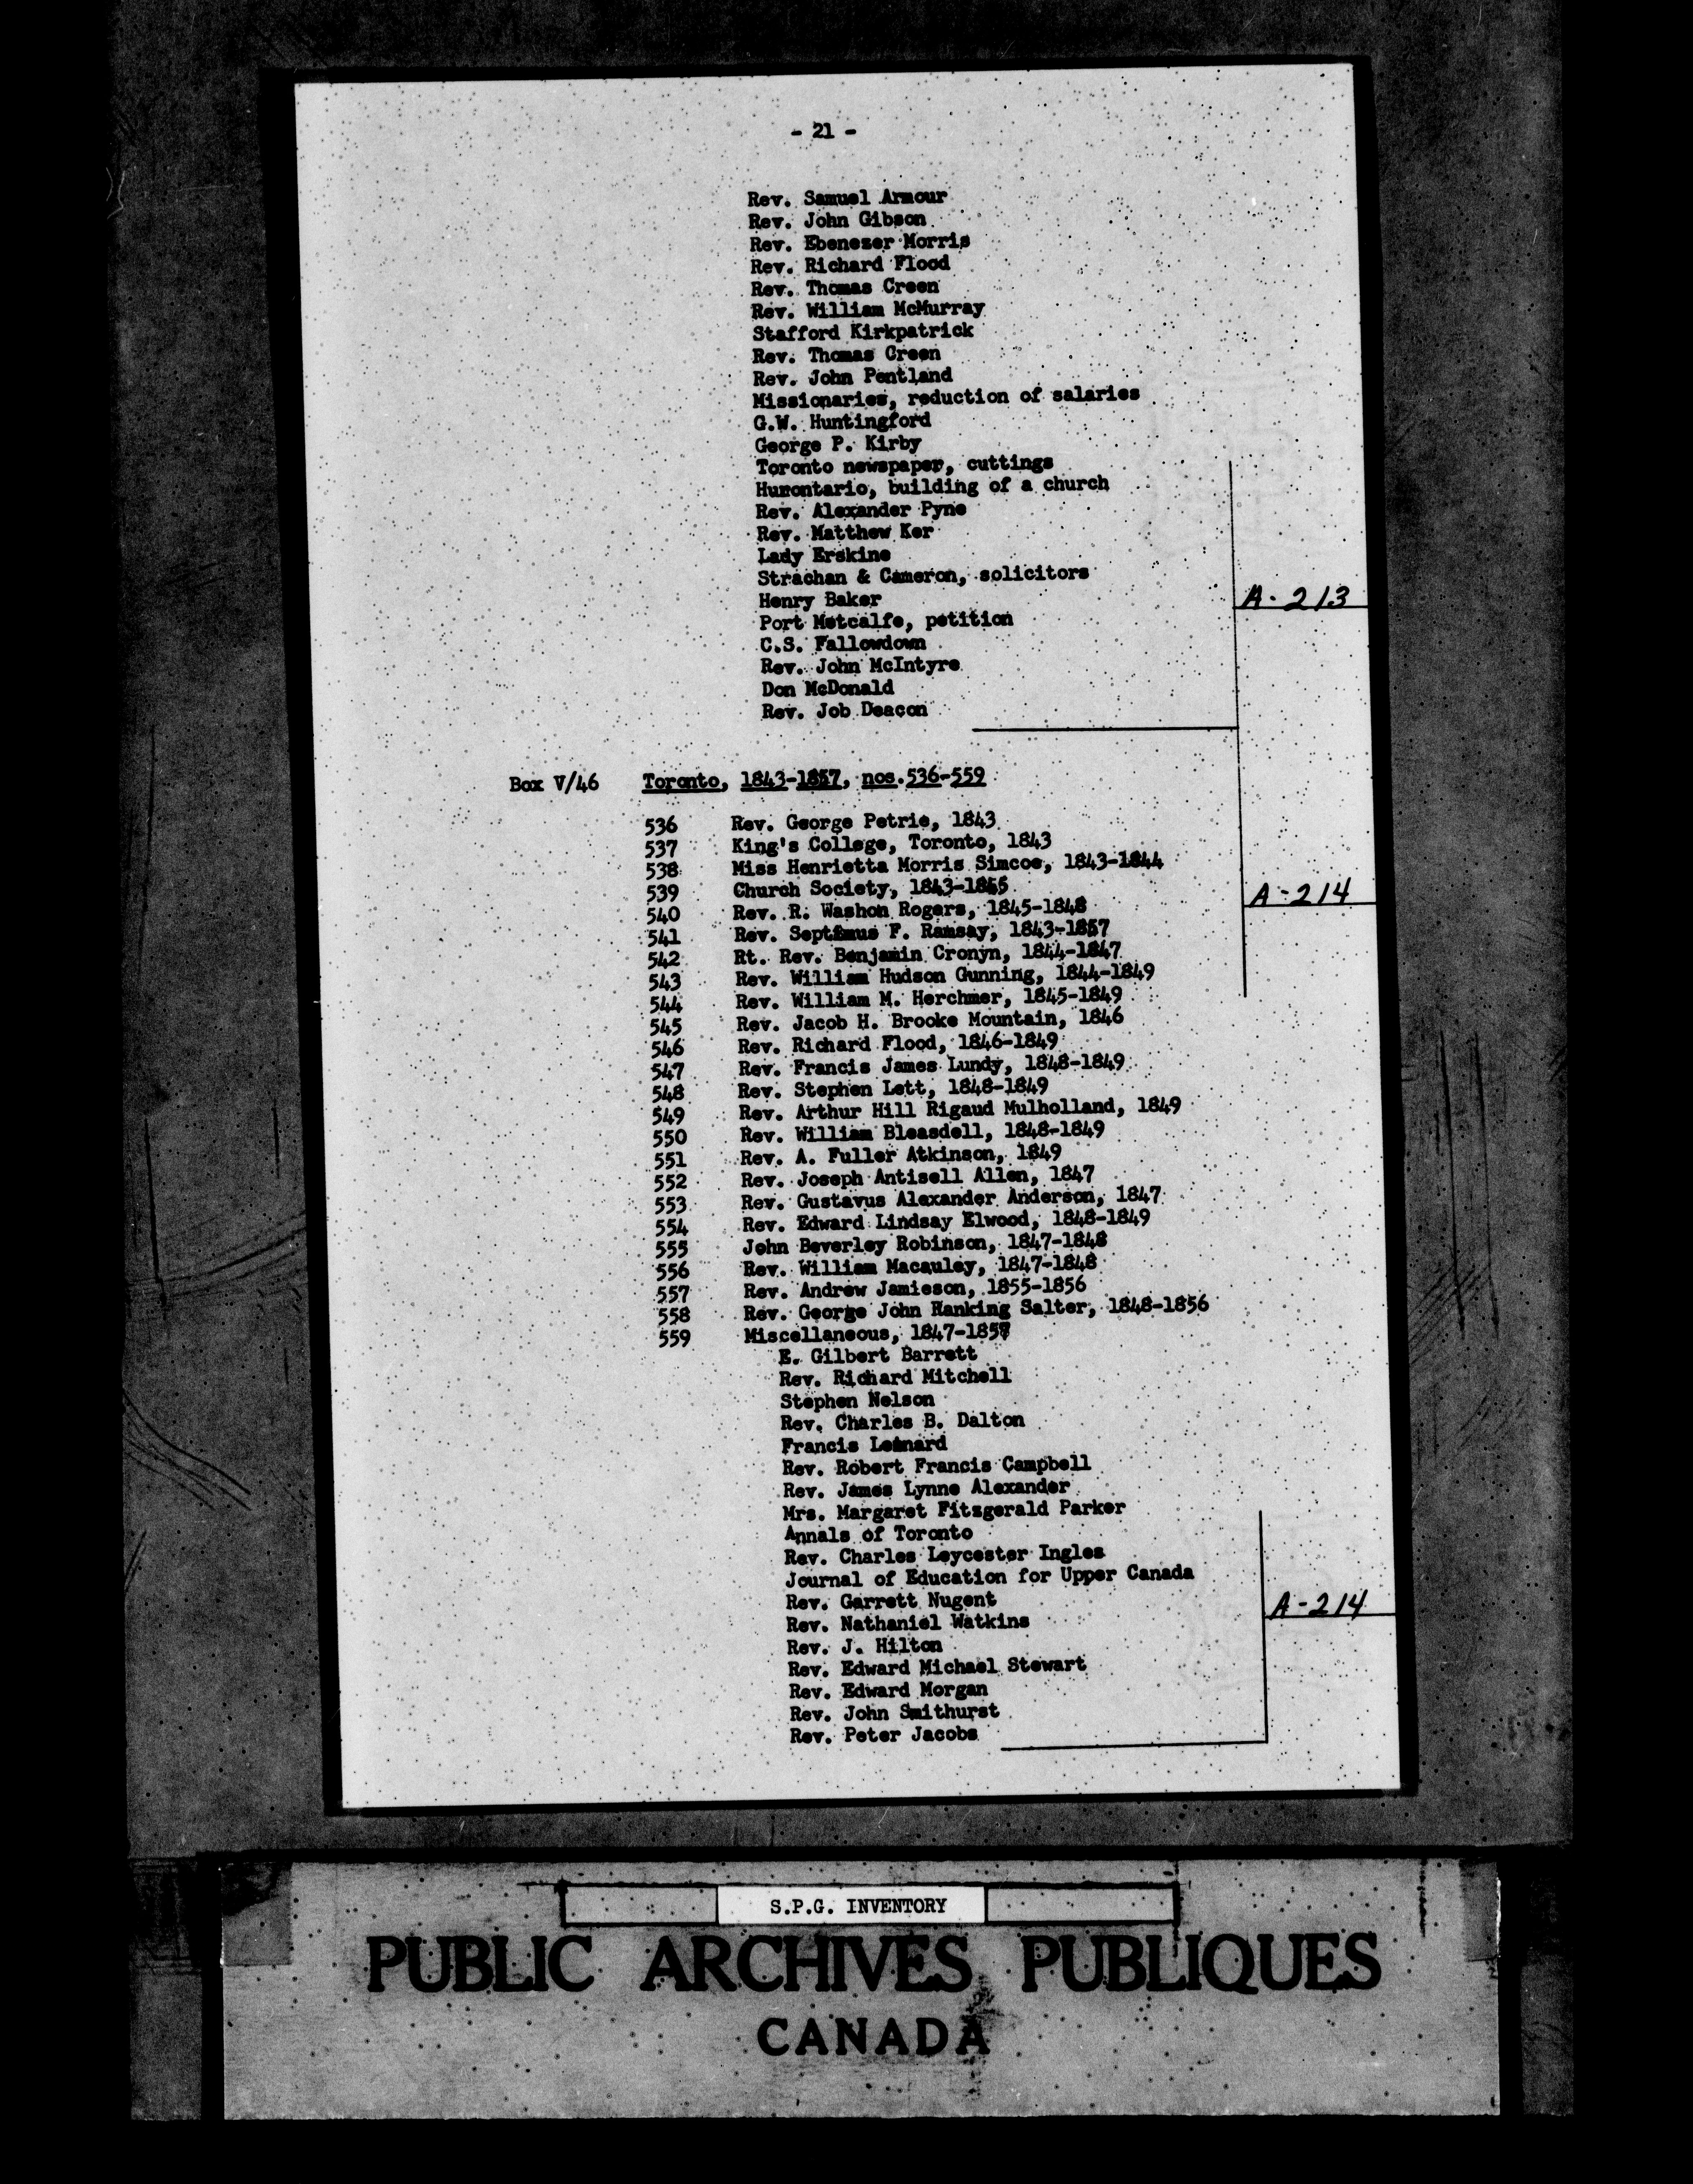 - 21 -
Rev. Samuel Armour
Rev. John Gibson
Rev. Ebenezer Morris
Rev. Richard Flood
Rev. Thomas Creen
Rev. William McMurray
Stafford Kirkpatrick
Rev. Thomas Creen
Rev. John Pentland
Missionaries, reduction of salaries
G.W. Huntingford
George P. Kirby
Toronto newspaper, cuttings
Hurontario, building of a church
Rev. Alexander Pyne
Rev. Matthew Ker
Lady Erskine
Strachan & Cameron, solicitors
Henry Baker
A-213
Port Metcalfe, petition
C.S. Fallowdown
Rev. John McIntyre
Don McDonald
Rev. Job Deacon
Box V/46 Toronto, 1843-1857, nos.536-559
536 Rev. George Petrie, 1843
537 King's College, Toronto, 1843
538 Miss Henrietta Morris Simcoe, 1843-1844
539 Church Society, 1843-1855
A-214
540 Rev. R. Washon Rogers, 1845-1848
541 Rev. Septimus F. Ramsay, 1843-1857
542 Rt. Rev. Benjamin Cronyn, 1844-1847
543 Rev. William Hudson Gunning, 1844-1849
544 Rev. William M. Herchmer, 1845-1849
545 Rev. Jacob H. Brooke Mountain, 1846
546 Rev. Richard Flood, 1846-1849
547 Rev. Francis James Lundy, 1848-1849
548 Rev. Stephen Lett, 1848-1849
549 Rev. Arthur Hill Rigaud Mulholland, 1849
550 Rev. William Bleasdell, 1848-1849
551 Rev. A. Fuller Atkinson, 1849
552 Rev. Joseph Antisell Allen, 1847
553 Rev. Gustavus Alexander Anderson, 1847
554 Rev. Edward Lindsay Elwood, 1848-1849
555 John Beverley Robinson, 1847-1848
556 Rev. William Macauley, 1847-1848
557 Rev. Andrew Jamieson, 1855-1856
558 Rev. George John Ranking Salter, 1848-1856
559 Miscellaneous, 1847-1857
E. Gilbert Barrett
Rev. Richard Mitchell
Stephen Nelson
Rev. Charles B. Dalton
Francis Leonard
Rev. Robert Francis Campbell
Rev. James Lynne Alexander
Mrs. Margaret Fitzgerald Parker
Annals of Toronto
Rev. Charles Leycester Ingles
Journal of Education for Upper Canada
Rev. Garrett Nugent
A-214
Rev. Nathaniel Watkins
Rev. J. Hilton
Rev. Edward Michael Stewart
Rev. Edward Morgan
Rev. John Smithurst
Rev. Peter Jacobs
S.P.G. INVENTORY
PUBLIC ARCHIVES PUBLIQUES
CANADA